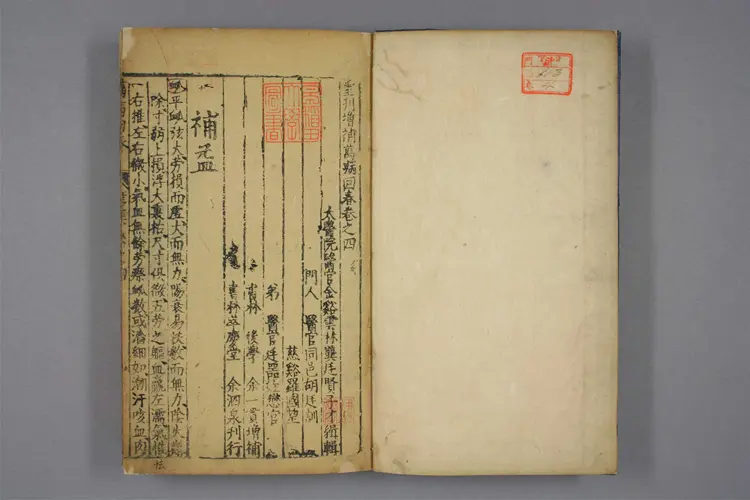 重刊增補萬病回春卷之四
太醫院醫官金谿雲林龔廷賢子才編輯
門人 醫官同邑胡廷訓
慈谿羅國望
弟 醫官廷器
書林 後學 余一貫增補
書林萃慶堂 余泗泉刊行
補益
脉平脉法大勞損而虛大而無力陽衰易扶數而無力陰失難
除寸弱上損浮大裏枯尺寸俱微五勞之軀血羸左濡氣怯
右推左右微小氣血無餘勞瘵脉數或濇細如潮汗咳血肉